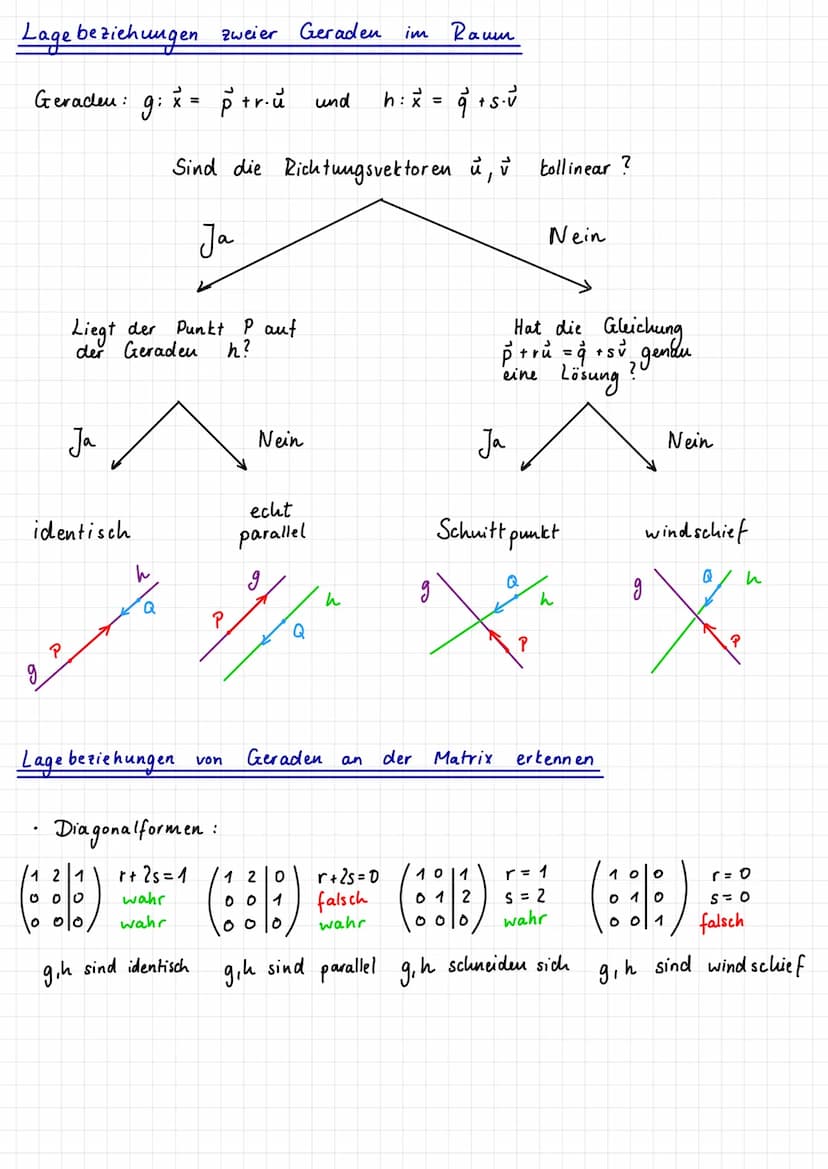 Lagebeziehungen zweier Geraden im Raum
Geraden: g: x⃗ = p⃗ + r·u⃗ und h: x⃗ = q⃗ + s·v⃗
Sind die Richtungsvektoren u⃗, v⃗ kollinear?
Ja
Nein
Liegt der Punkt P auf
der Geraden h?
Hat die Gleichung
p⃗ + ru⃗ = q⃗ + sv⃗ genau
eine Lösung?
Ja
Nein
Ja
Nein
identisch
echt
parallel
Schnittpunkt
windschief
h
Q
P
g
g
h
P
Q
g
Q
h
P
g
Q
h
P
Lagebeziehungen von Geraden an der Matrix erkennen
· Diagonalformen:
(1 2 | 1) r + 2s = 1 (1 2 | 0) r + 2s = 0 (1 0 | 1) r = 1 (1 0 | 0) r = 0
(0 0 | 0) wahr (0 0 | 1) falsch (0 1 | 2) s = 2 (0 1 | 0) s = 0
(0 0 | 0) wahr (0 0 | 0) wahr (0 0 | 0) wahr (0 0 | 1) falsch
g,h sind identisch g,h sind parallel g,h schneiden sich g,h sind windschief